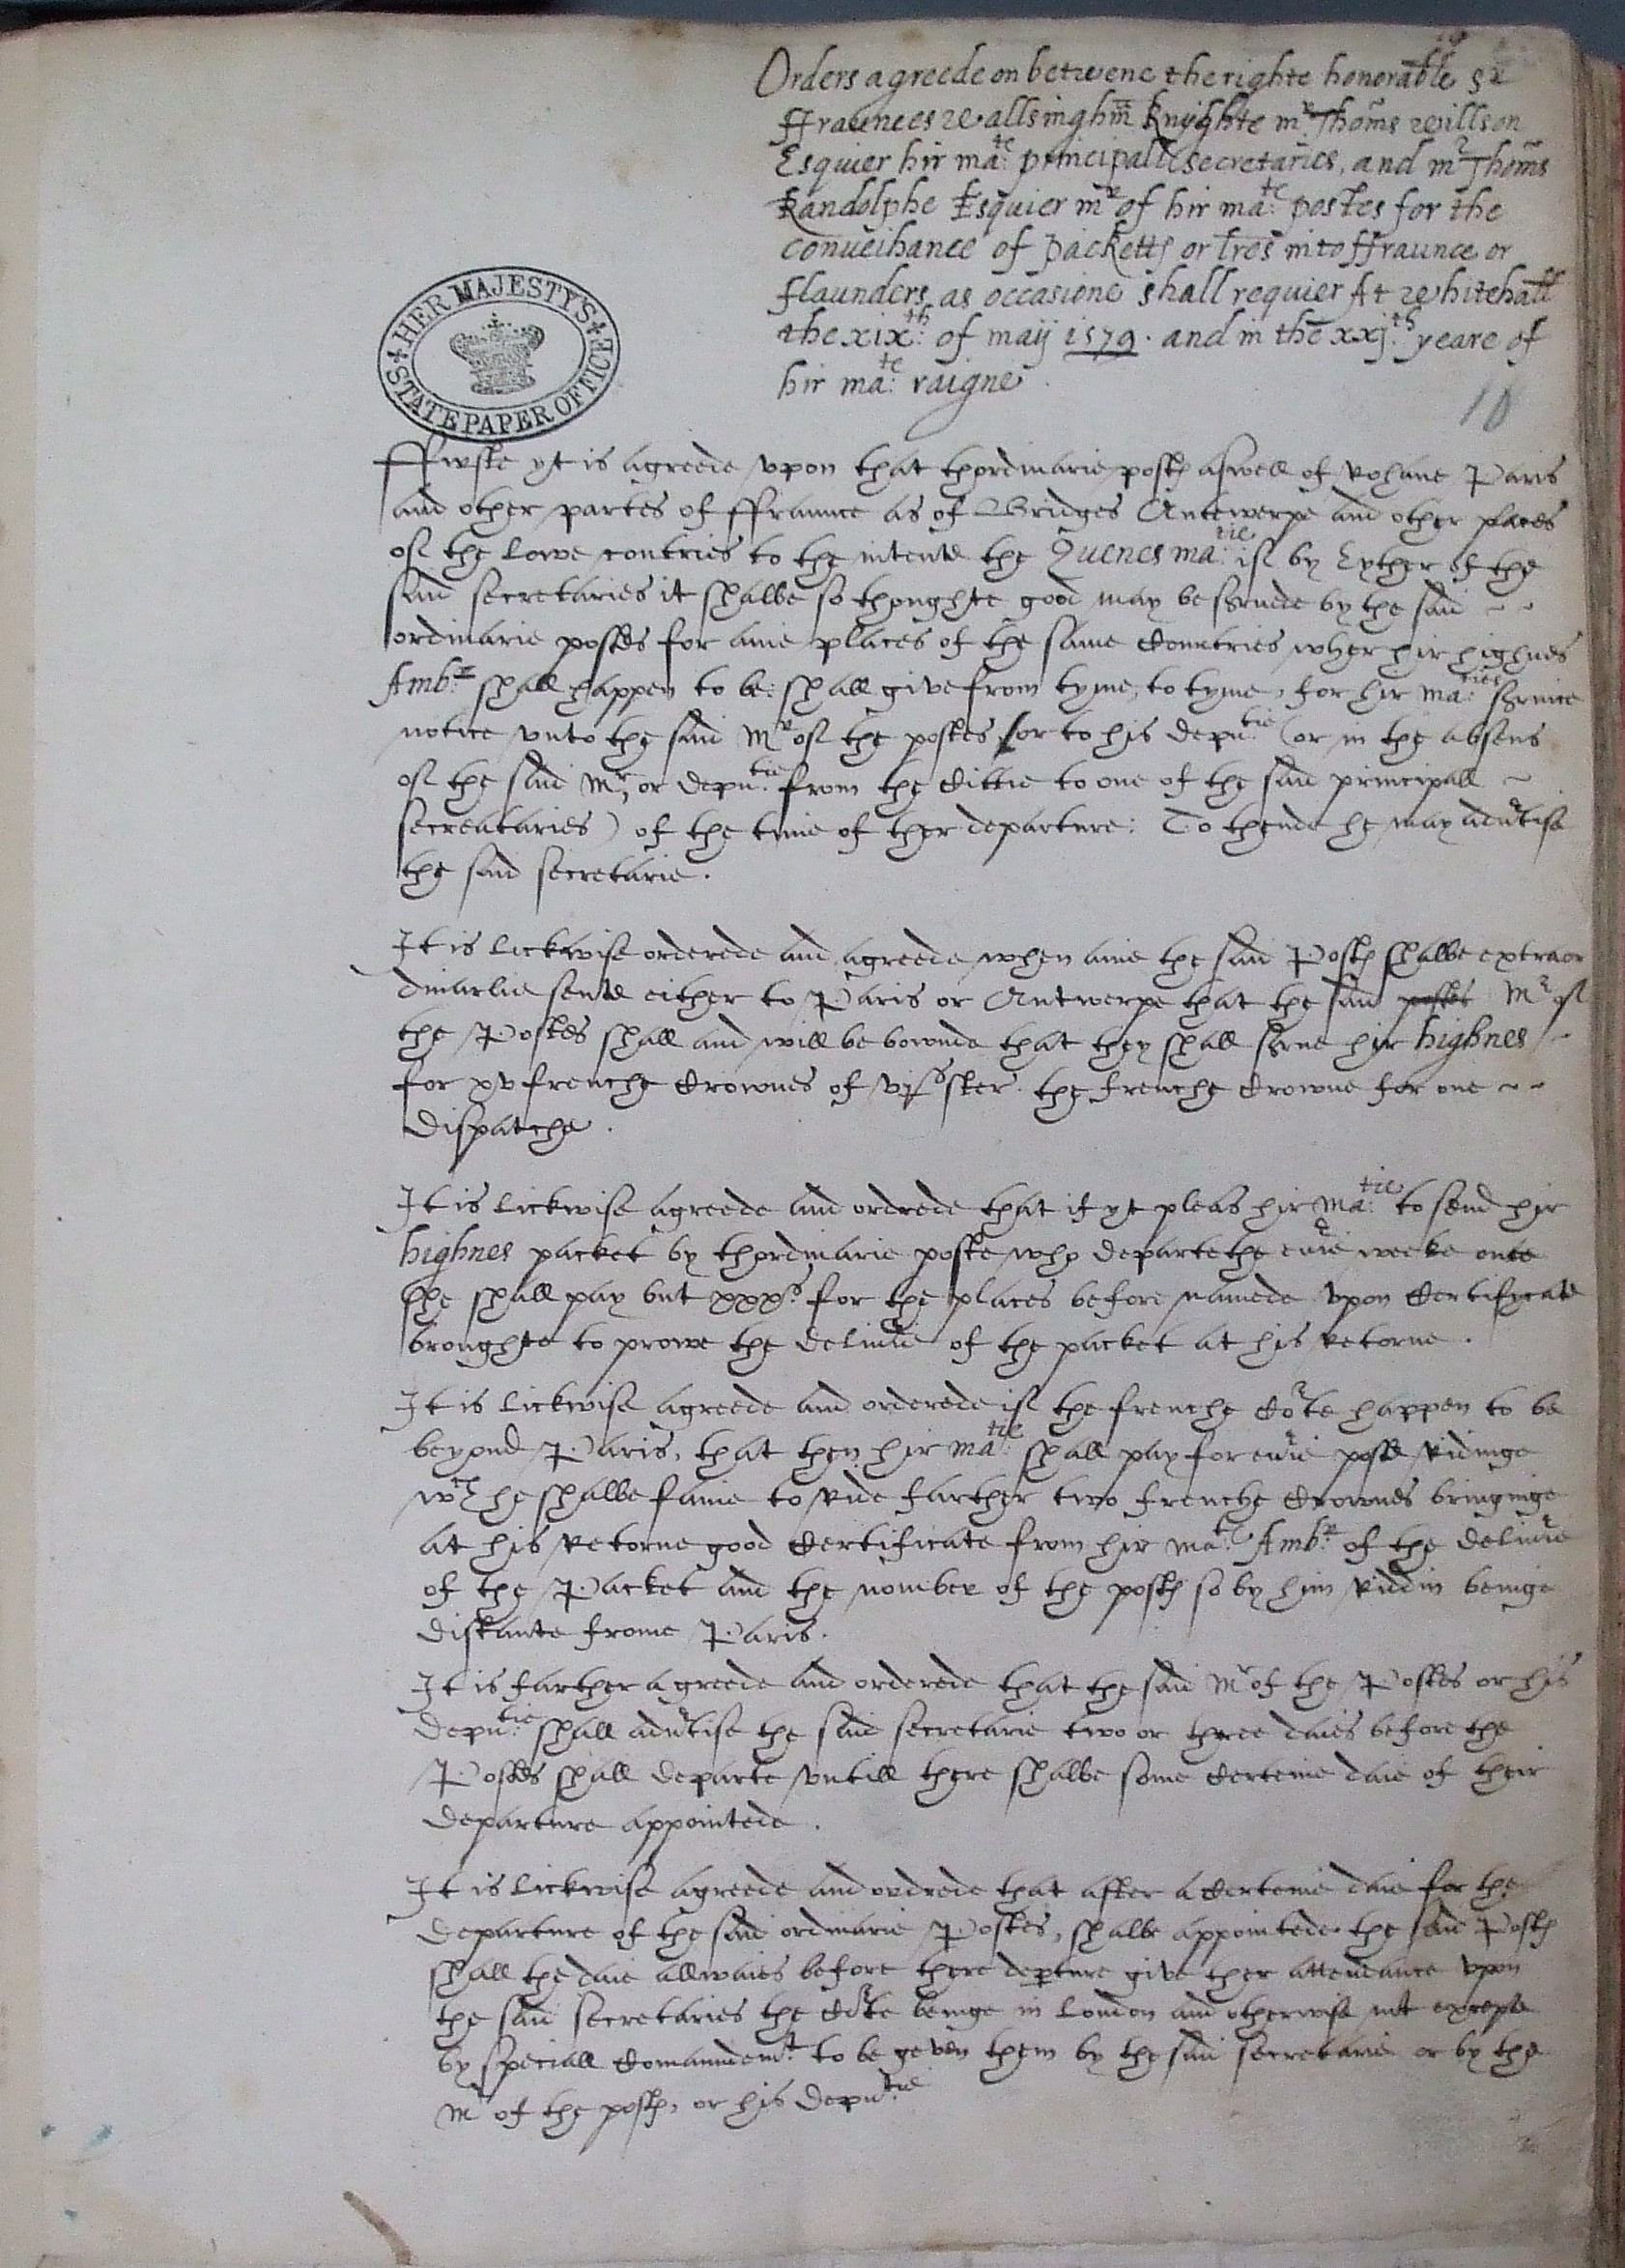 Orders agreede on betwene the righte honorable Sr
ffraunces wallsinghm̄ Knyghte mr Thom̄s willson
Esquier hir ma:te principall secretaries, and mr Thom̄s
Randolphe Esquier mr of hir ma:te postes for the
conveihance of packetts or l̄res into ffraunce or
flaunders as occasione shall requier At whitehall
the xix:th of maij 1579. and in the xxj:th yeare of
hir ma:te raigne
HER MAJESTY'S STATE PAPER OFFICE
10
ffirste yt is agreede vpon that thordinarie posts aswell of Rohane Paris
and other partes of ffraunce as of Bridges Antewerpe and other places
of the lowe contries to the intente the Quenes ma:tie if by Eyther of the
said secretaries it shalbe so thoughte good may be serude by the said
ordinarie postes for anie places of the same Countries wher hir highnes
Amb:r shall happen to be: shall give from tyme, to tyme, for hir ma:ties service
notice vnto the said Mr of the postes, (or to his depu:tie (or in the absens
of the said Mr, or depu:tie from the Cittie to one of the said principall
secreataries) of the time of ther departure: To thende he may adu̔tise
the said secretarie.
It is lickwise orderede and agreede when anie the said Posts shalbe extraor
dinarlie sente either to Paris or Antwerpe that the said postes Mr of
the Postes shall and will be bownde that they shall serue hir highnes
for xv frenche Crownes of vjs ster. the frenche Crowne for one
dispatche.
It is lickwise agreede and ordrede that if yt pleas hir ma:tie to send hir
highnes packet by thordinarie poste who departethe eu̔ie weeke once
she shall pay but xxxs. for the places before namede vpon Certificate
broughte to prowe the deliu̔ie of the packet at his retorne.
It is lickwise agreede and orderede if the frenche Co̔te happen to be
beyond Paris, that then hir ma:tie shall pay for eu̔ie poste ridinge
wch he shalbe faine to ride farther two frenche Crownes bringinge
at his retorne good Certificate from hir ma:te Amb:r of the deliu̔ie
of the Packet and the nomber of the posts so by him riddin beinge
distante frome Paris.
It is farther agreede and orderede that the said Mr of the Postes or his
depu:tie shall adu̔tise the said secretarie two or three daies before the
Postes shall departe vntill there shalbe some Certeine daie of their
departure appointede.
It is lickwise agreede and ordrede that after a Certeine daie for the
departure of the said ordinarie Postes, shalbe appointede the said Posts
shall the daie allwaies before there depture give ther attendance vpon
the said secretaries the Co̔te beinge in London and otherwise not excepte
by speciall Comaundem:t to be geven them by the said secretarie or by the
Mr of the posts, or his depu:tie